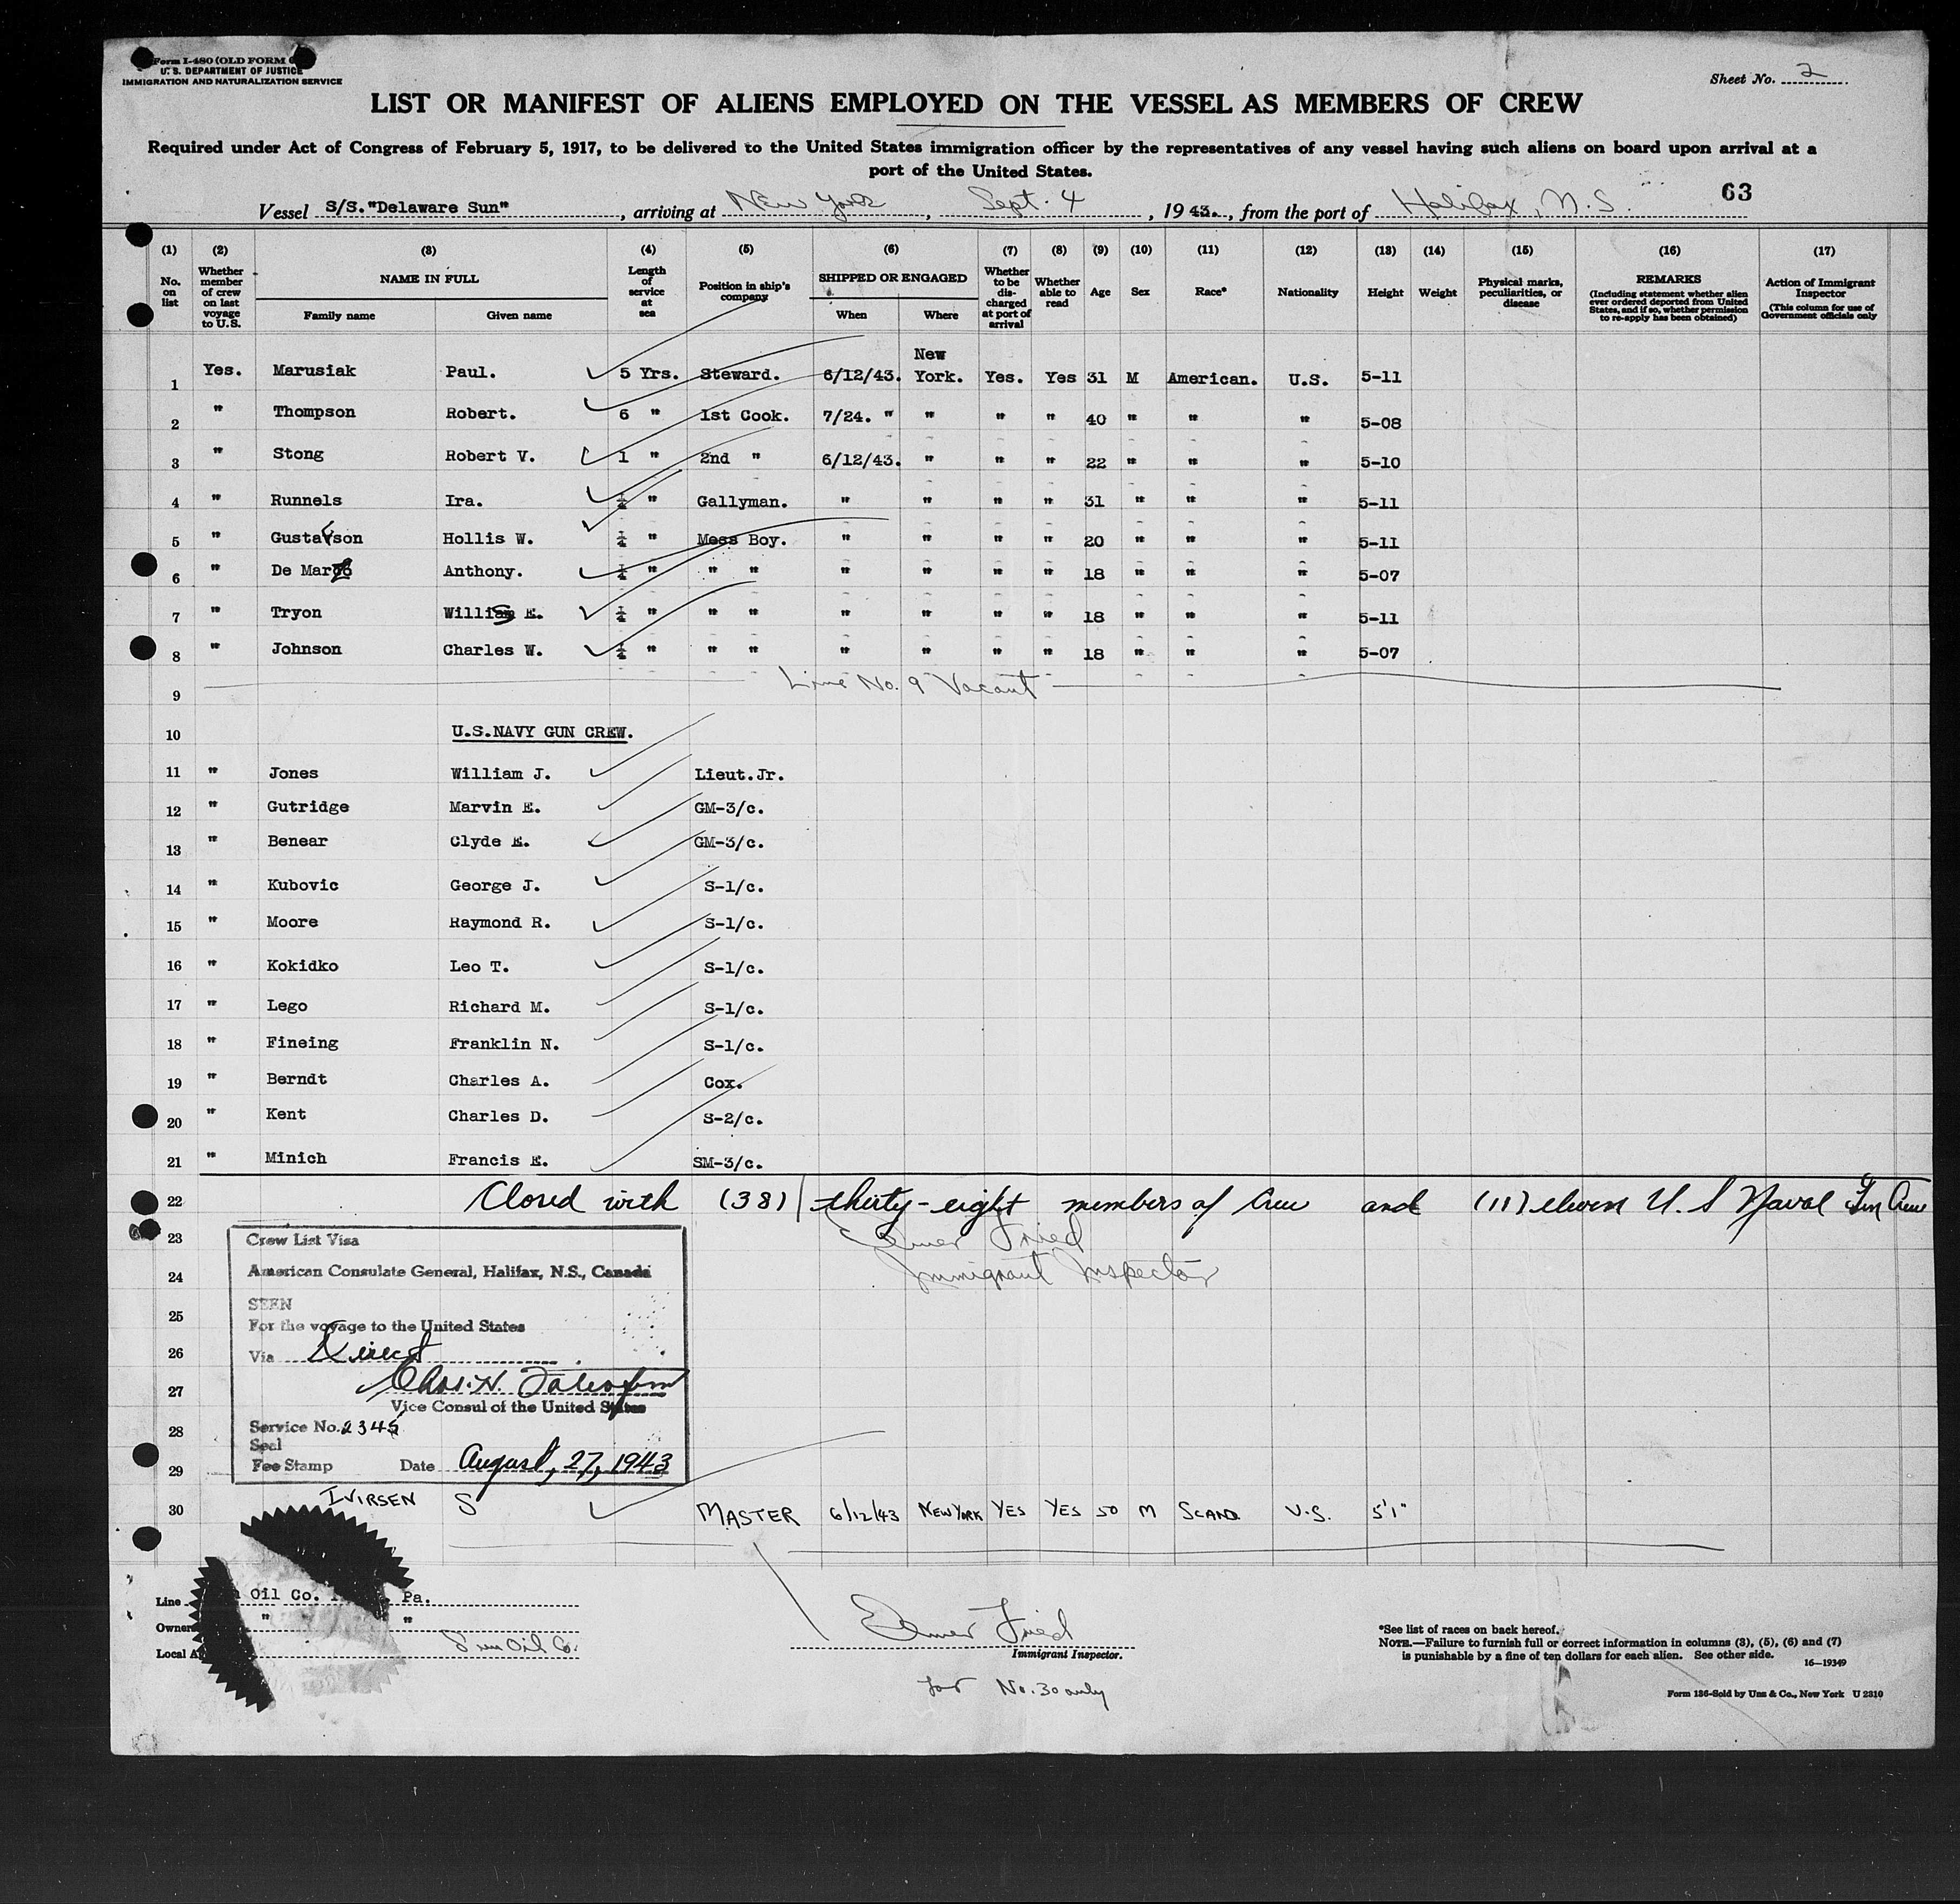 Form I-480 (OLD FORM
U. S. DEPARTMENT OF JUSTICE
IMMIGRATION AND NATURALIZATION SERVICE
Sheet No. 2
LIST OR MANIFEST OF ALIENS EMPLOYED ON THE VESSEL AS MEMBERS OF CREW
Required under Act of Congress of February 5, 1917, to be delivered to the United States immigration officer by the representatives of any vessel having such aliens on board upon arrival at a
port of the United States.
63
Vessel S/S. "Delaware Sun", arriving at New York, Sept. 4, 1943., from the port of Halifax, N.S.
(1) (2) (3) (4) (5) (6) (7) (8) (9) (10) (11) (12) (13) (14) (15) (16) (17)
No. on list
Whether member of crew on last voyage to U.S.
NAME IN FULL
Family name
Given name
Length of service at sea
Position in ship's company
SHIPPED OR ENGAGED
When
Where
Whether to be discharged at port of arrival
Whether able to read
Age
Sex
Race*
Nationality
Height
Weight
Physical marks, peculiarities, or disease
REMARKS
(Including statement whether alien ever ordered deported from United States, and if so, whether permission to re-apply has been obtained)
Action of Immigrant Inspector
(This column for use of Government officials only
1 Yes. Marusiak Paul. 5 Yrs. Steward. 6/12/43. New York. Yes. Yes 31 M American. U.S. 5-11
2 " Thompson Robert. 6 " 1st Cook. 7/24. " " " " 40 " " " 5-08
3 " Stong Robert V. 1 " 2nd " 6/12/43. " " " 22 " " " 5-10
4 " Runnels Ira. " Gallyman. " " " " 31 " " " 5-11
5 " Gustavson Hollis W. ¼ " Mess Boy. " " " " 20 " " " 5-11
6 " De Marco Anthony. ¼ " " " " " " " 18 " " " 5-07
7 " Tryon Willis E. ¼ " " " " " " " 18 " " " 5-11
8 " Johnson Charles W. ¼ " " " " " " " 18 " " " 5-07
9 Line No. 9 Vacant
10 U.S.NAVY GUN CREW.
11 " Jones William J. Lieut.Jr.
12 " Gutridge Marvin E. GM-3/c.
13 " Benear Clyde E. GM-3/c.
14 " Kubovic George J. S-1/c.
15 " Moore Raymond R. S-1/c.
16 " Kokidko Leo T. S-1/c.
17 " Lego Richard M. S-1/c.
18 " Fineing Franklin N. S-1/c.
19 " Berndt Charles A. Cox.
20 " Kent Charles D. S-2/c.
21 " Minich Francis E. SM-3/c.
22 Closed with (38) thirty-eight members of Crew and (11) eleven U. S Naval Gun Crew
23 Elmer Fried
24 Immigrant Inspector
25
26
27
28
29
Crew List Visa
American Consulate General, Halifax, N.S., Canada
SEEN
For the voyage to the United States
Via Direct
Chas. H.
Vice Consul of the United States
Service No. 2345
Seal
Fee Stamp Date August, 27, 1943
30 IVIRSEN S MASTER 6/12/43 NEW YORK YES YES 50 M SCAND. U.S. 5'1"
Line Oil Co. Pa.
Owners " "
Local A Sun Oil Co.
Elmer Fried
Immigrant Inspector.
for No. 30 only
*See list of races on back hereof.
NOTE.—Failure to furnish full or correct information in columns (3), (5), (6) and (7)
is punishable by a fine of ten dollars for each alien. See other side.
16—19349
Form 136-Sold by Unz & Co., New York U 2310